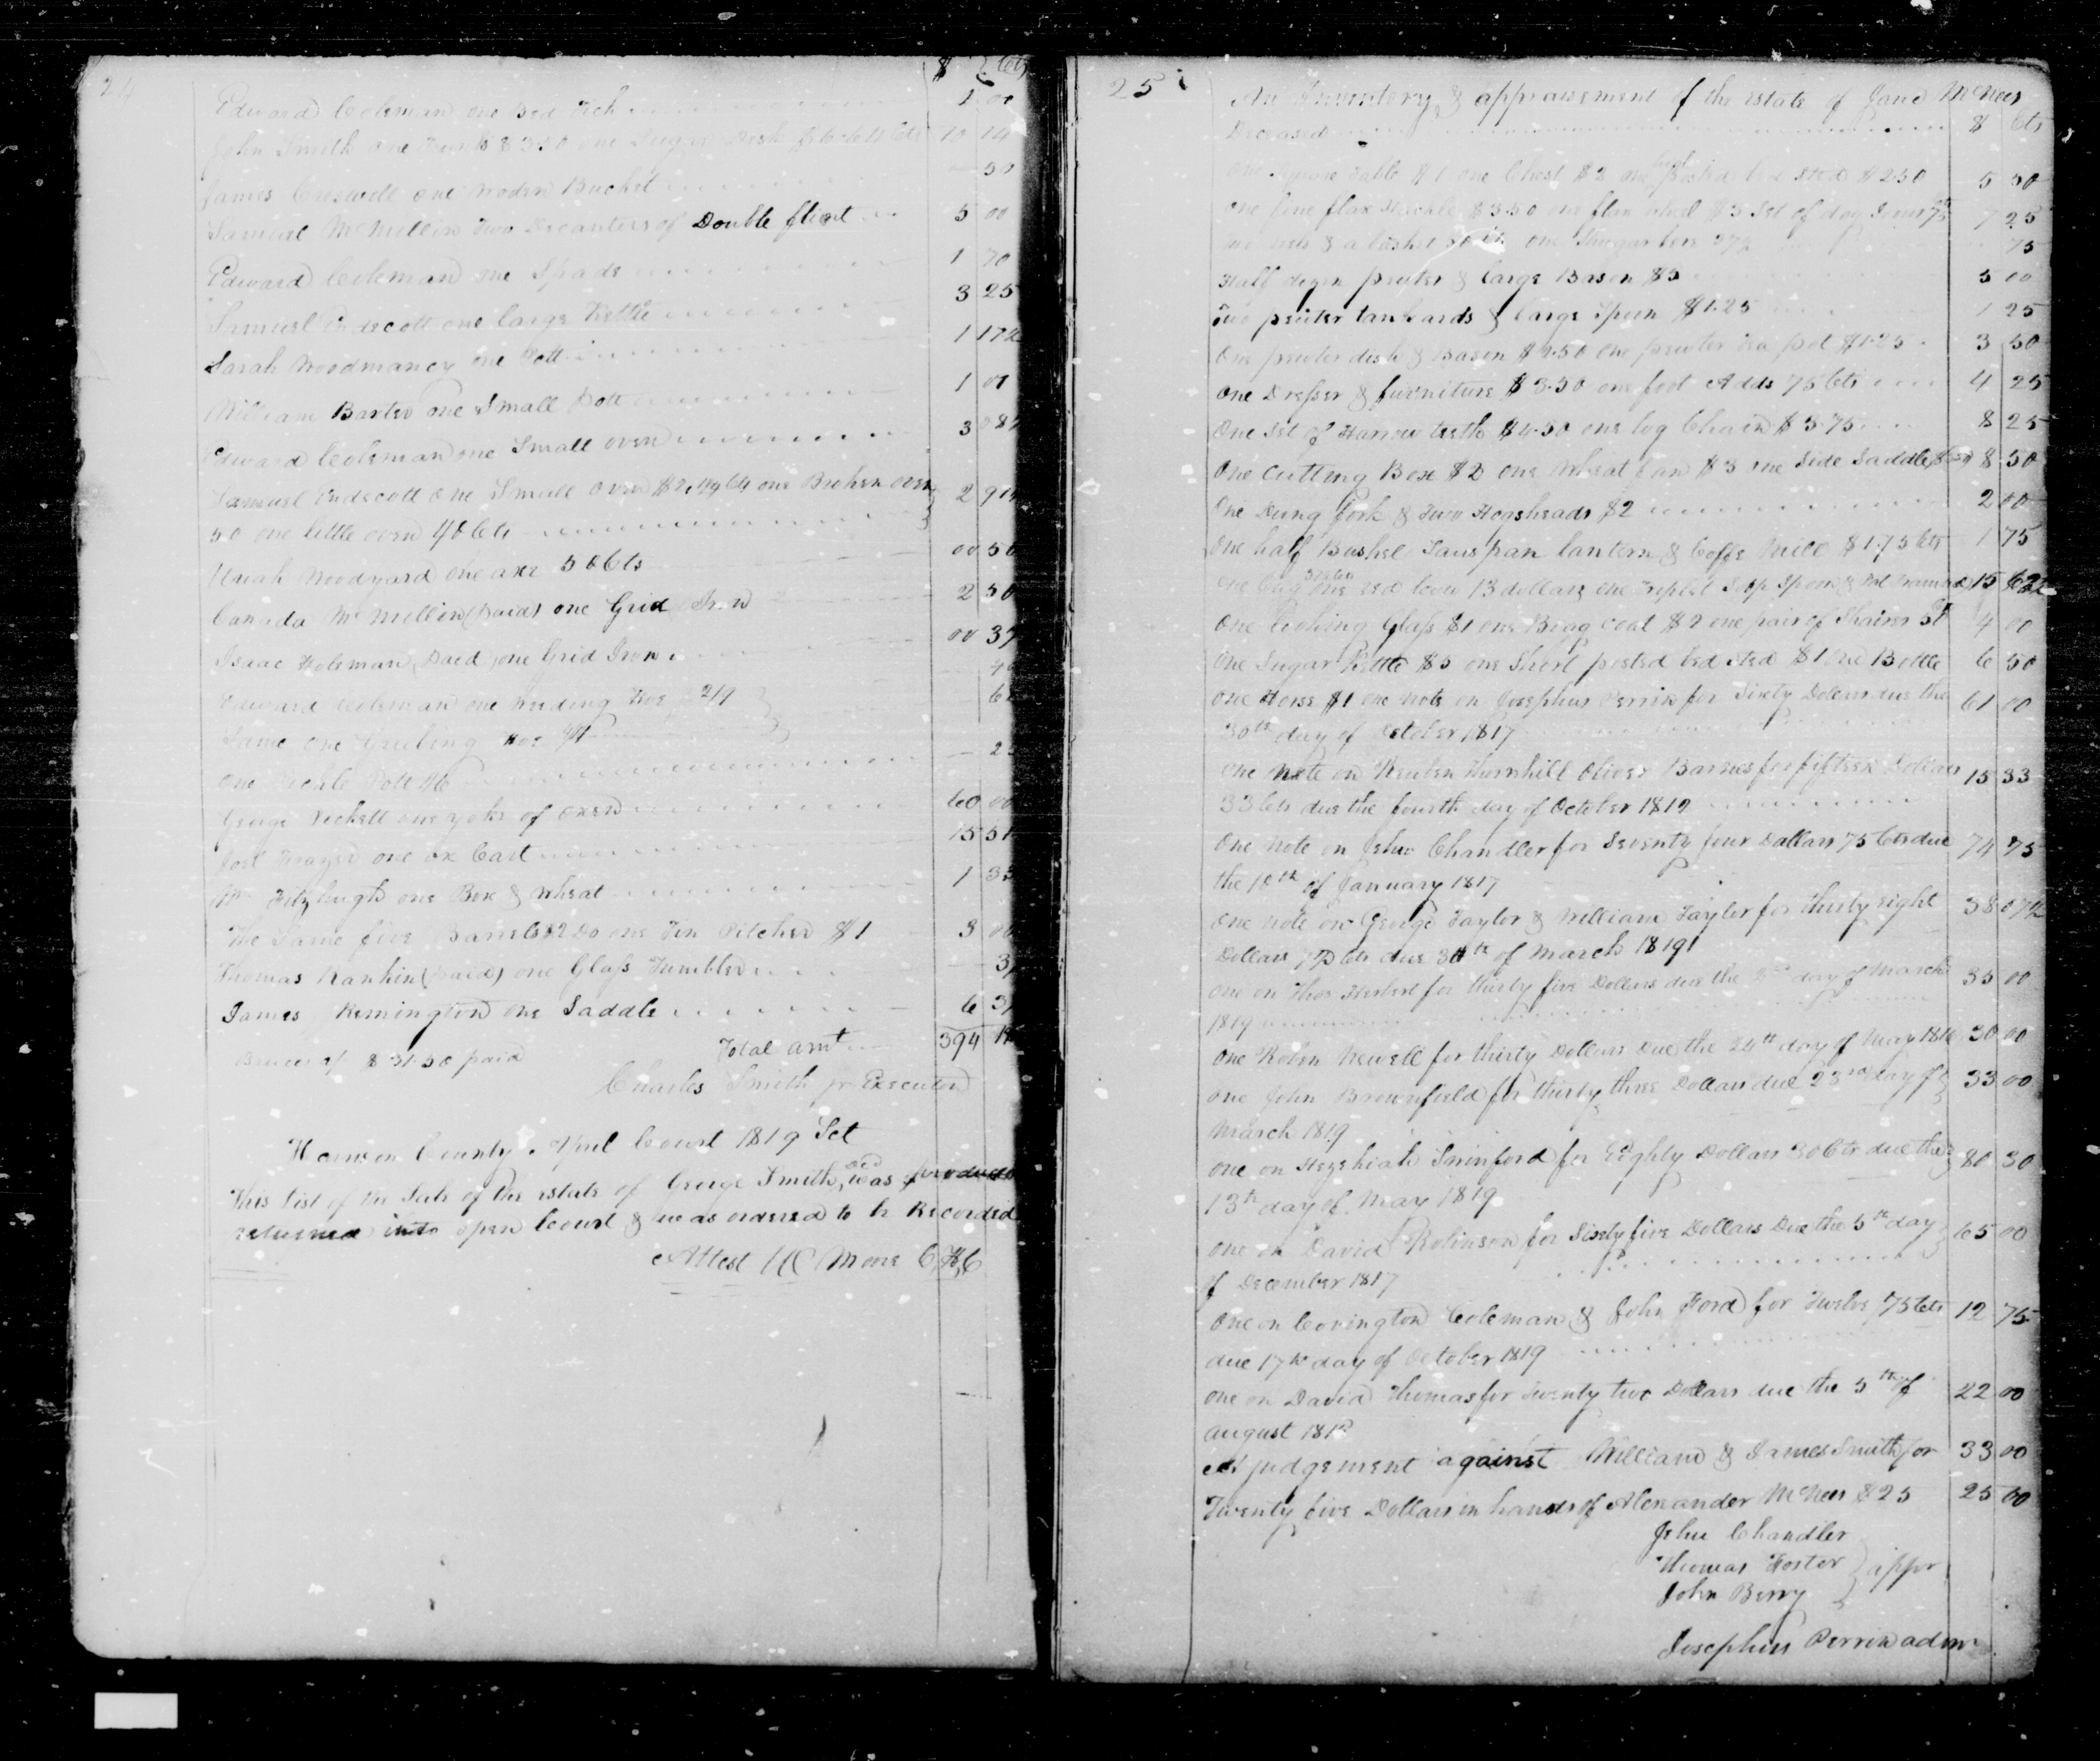 24
$ Cts
Edward Coleman one Bed Tick 1 00
John Smith one Trunk $3.50 one Sugar Desk $6.64 Cts 10 14
James Creswell one Woden Bucket 50
Samuel McMillin Two Decanters of Double flint 5 00
Edward Coleman one Spade 1 70
Samuel Endecott one large Kettle 3 25
Sarah Woodmancy one Pott 1 17½
William Barter one Small Pott 1 01
Edward Coleman one Small oven 3
Samuel Endecott one Small oven one Broken oven 2
50 one little oven 40 Cts
Uriah Woodyard one axe 50 Cts 00 50
Canada McMillin (paid) one Grid Iron 2 50
Isaac Holeman Paid one Grid Iron 00 37
Edward Coleman one Weeding Hoe
Same one Grubing Hoe
one Pott
George Pickett one yoke of oxen 60 00
Josl Frazer one ox Cart 15 51
Wm Fitzhugh one Box & Wheat 1 33
The Same five Barrels one Tin Pitcher $1 3 00
Thomas Rankin (paid) one Glass Tumbler
James Remington one Saddle 6 37
Total amt 394
$31.50 paid
Charles Smith jr Executor
Harrison County April Court 1819 Sct
This list of the Sale of the estate of George Smith, decd was produced
returned into open Court & was ordered to be Recorded
Attest HC Moore C,H,C
25
An Inventory & appraisement of the estate of Jane McNees
Deceased $ Cts
One Square table $1 one Chest $2 one posted bed sted $2.50 5 50
One fine flax Hackle $3.50 one flax wheel $3 Set of dog Irons 75 7 25
& a basket one 75
Half dozen pewter & large Bason $5 5 00
Two pewter tankards & large Spoon $1.25 1 25
One pewter dish & Bason one pewter Tea pot $1.25 3 50
One Dresser & furniture $3.50 one foot Adds 75 Cts 4 25
One Set of Harrow teeth $4.50 one log Chain $3.75 8 25
One cutting Box $2 one Wheat fan $3 one Side Saddle 8 50
One Dung fork & two Hogsheads $2 2 00
One half Bushel Saus pan lantern & Coffe Mill $1.75 Cts 1 75
one red cow 13 dollars one 15 62½
One looking Glass $1 one Bigg coat $2 one pair of 4 00
One Sugar Kettle $5 one Short posted bed sted $1 one Bottle 6 50
One Horse $1 one note on Josephus Perrin for Sixty Dollars due the 61 00
30th day of October 1817
One note on Reuben Thornhill Oliver Barnes for fifteen Dollars 15 33
33 Cts due the fourth day of October 1819
One note on Jehu Chandler for Seventy four Dollars 75 Cts due 74 75
the 10th of January 1817
One note on George Taylor & William Taylor for thirty eight 38 07½
Dollars 7½ Cts due 30th of March 1819
one on Thos Herbert for thirty five Dollars due the day of March 35 00
1819
One Robin Newell for thirty Dollars Due the 24th day of May 1818 30 00
one John Brownfield for thirty three Dollars due 23rd day of 33 00
March 1819
one on Hezekiah Swinford for Eighty Dollars 30 Cts due the 80 30
13th day of May 1819
one on David Robinson for Sixty five Dollars Due the 5th day 65 00
of December 1817
One on Covington Coleman & John Ford for Twelve 75 Cts 12 75
due 17th day of October 1819
one on David Thomas for Twenty two Dollars due the 5th of 22 00
august
A judgement against William & James Smith for 33 00
Twenty five Dollars in hands of Alexander McNees $25 25 00
Jehu Chandler
Thomas Foster } appr
John Berry
Josephus Perrin adm